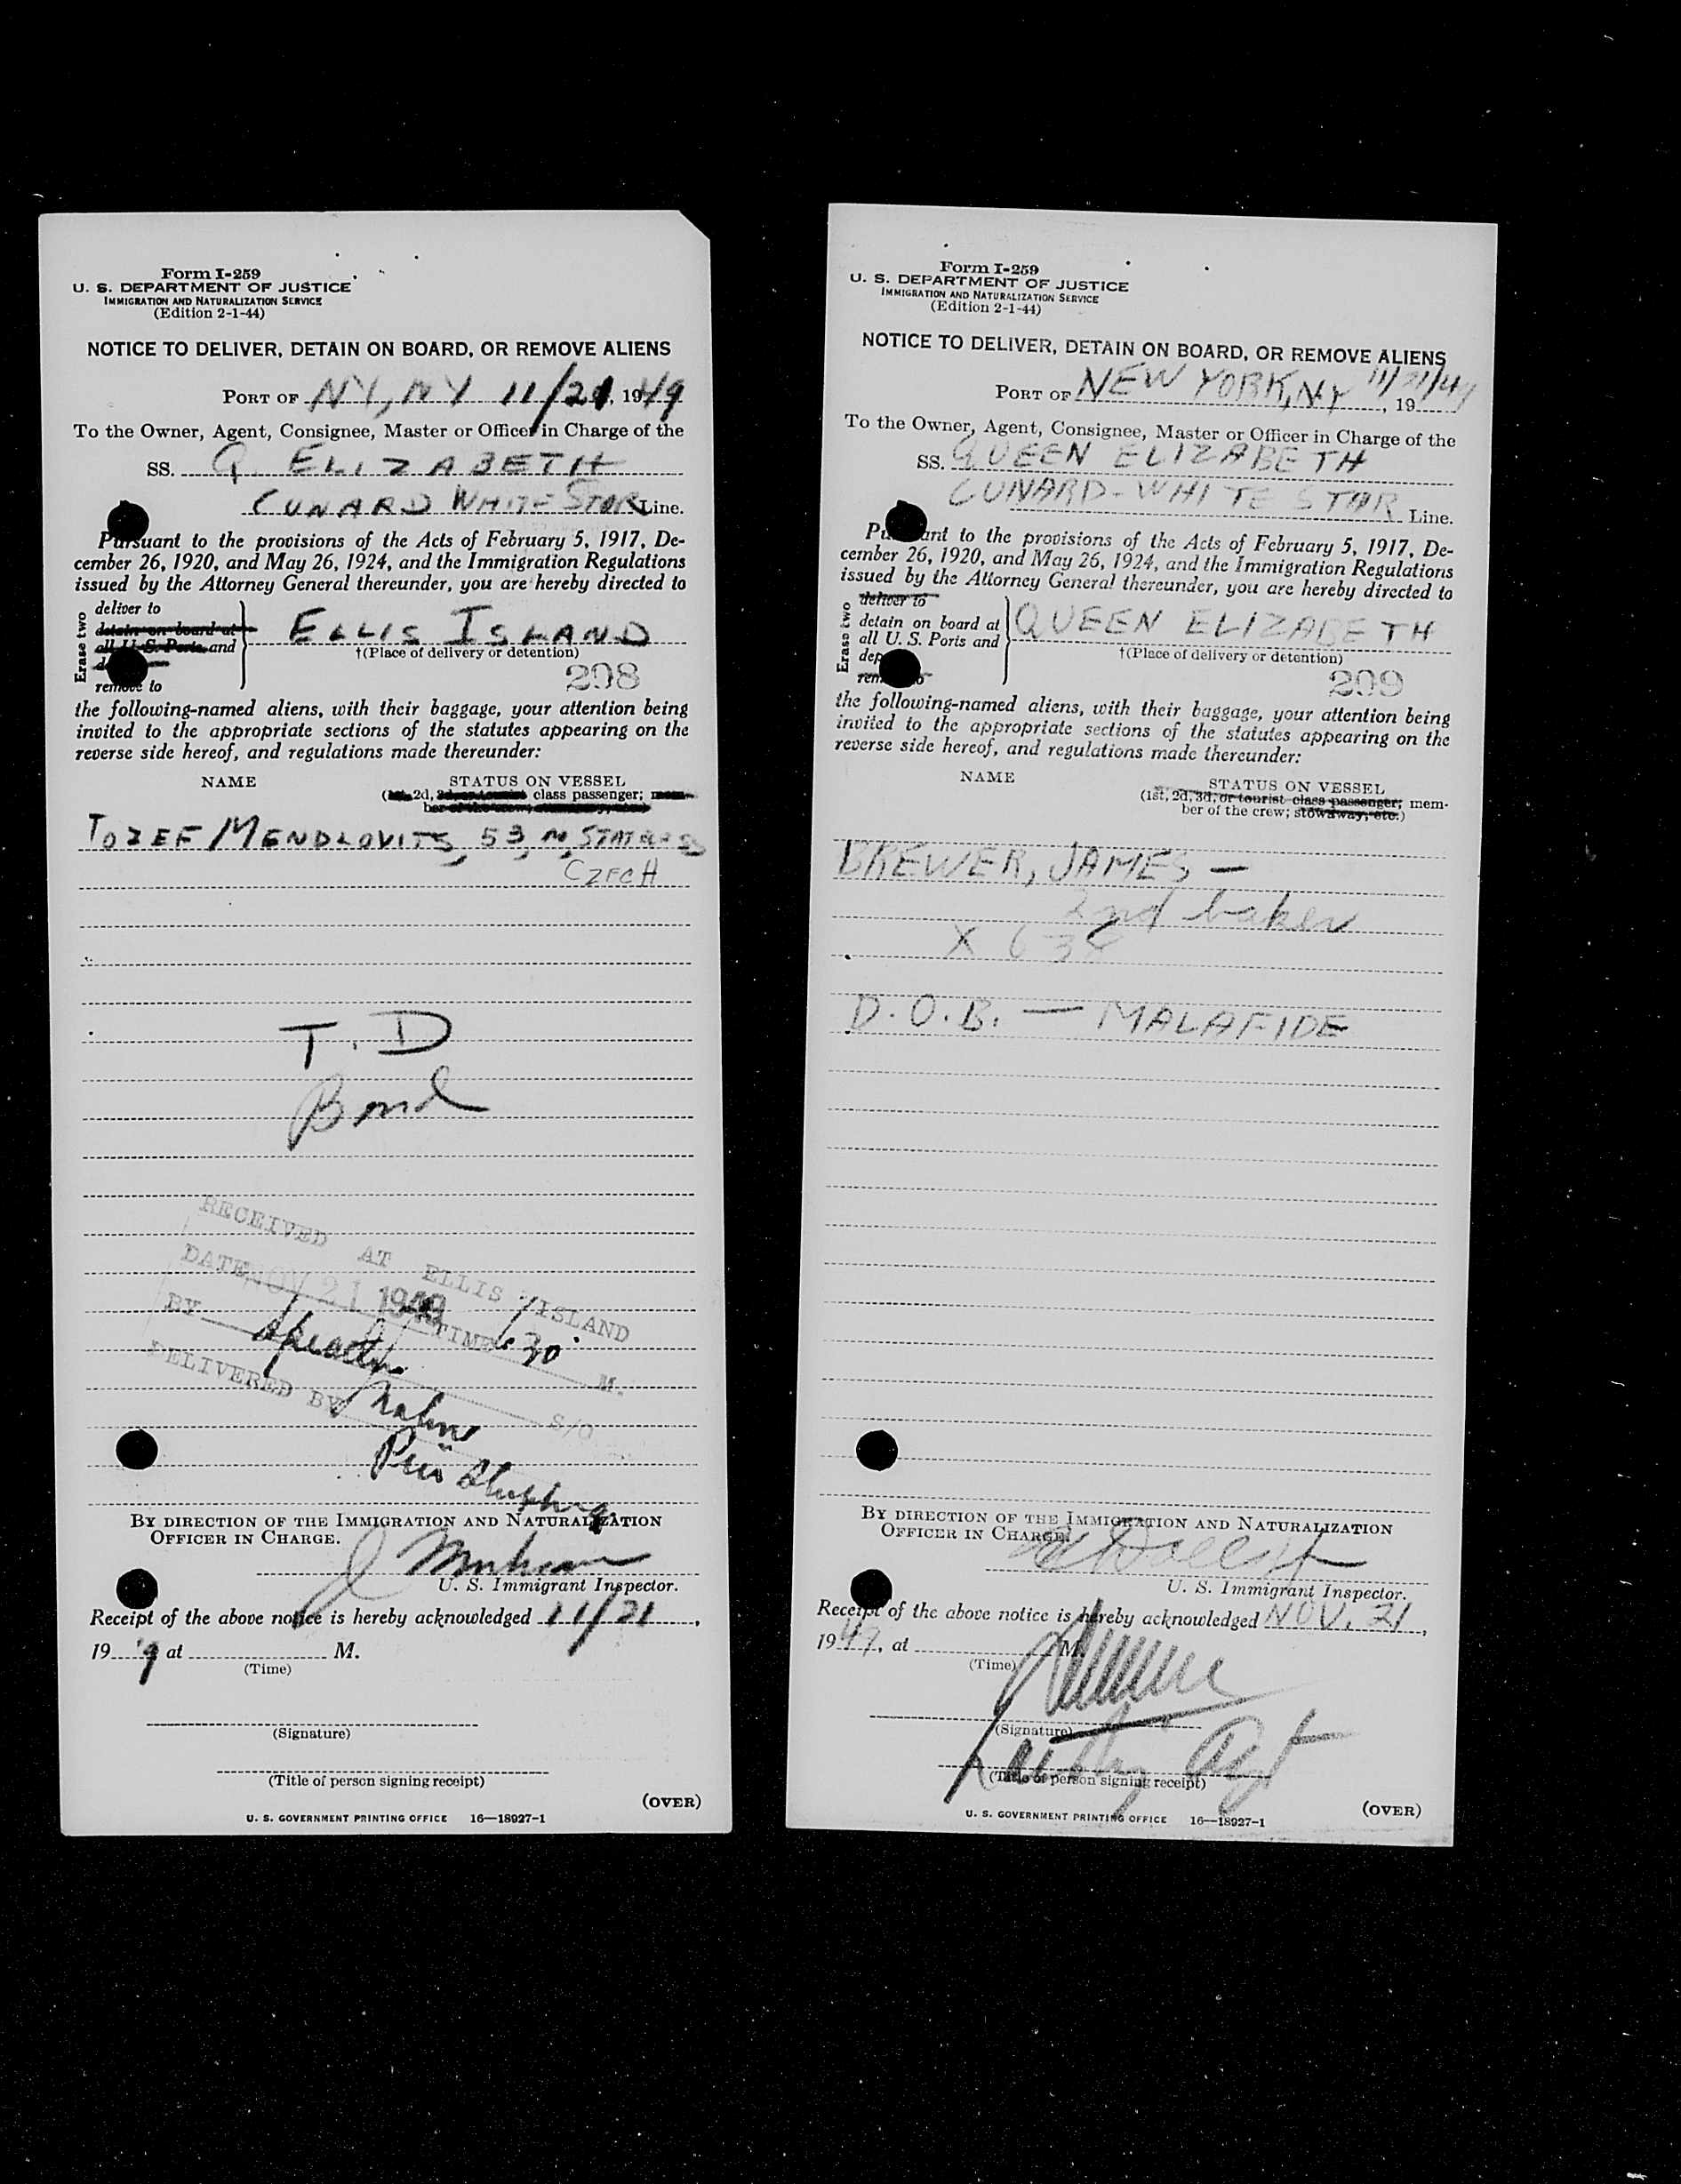 Form I-259
U. S. DEPARTMENT OF JUSTICE
IMMIGRATION AND NATURALIZATION SERVICE
(Edition 2-1-44)
NOTICE TO DELIVER, DETAIN ON BOARD, OR REMOVE ALIENS
PORT OF NY, NY 11/21, 1949
To the Owner, Agent, Consignee, Master or Officer in Charge of the
SS. Q. ELIZABETH
CUNARD WHITE STAR Line.
Pursuant to the provisions of the Acts of February 5, 1917, De-
cember 26, 1920, and May 26, 1924, and the Immigration Regulations
issued by the Attorney General thereunder, you are hereby directed to
Erase two
deliver to
detain on board at
all U. S. Ports and
remove to
ELLIS ISLAND
†(Place of delivery or detention)
208
the following-named aliens, with their baggage, your attention being
invited to the appropriate sections of the statutes appearing on the
reverse side hereof, and regulations made thereunder:
NAME STATUS ON VESSEL
(1st, 2d, 3d, or tourist class passenger; mem-
ber of the crew; stowaway, etc.)
JOZEF MENDLOVITS, 53, M,
CZECH
T. D
Bond
RECEIVED AT ELLIS ISLAND
DATE NOV 21 1949 TIME 30 M.
BY
DELIVERED BY S/O
BY DIRECTION OF THE IMMIGRATION AND NATURALIZATION
OFFICER IN CHARGE.
U. S. Immigrant Inspector.
Receipt of the above notice is hereby acknowledged 11/21,
19 9 at M.
(Time)
(Signature)
(Title of person signing receipt)
(OVER)
U. S. GOVERNMENT PRINTING OFFICE 16—18927-1
Form I-259
U. S. DEPARTMENT OF JUSTICE
IMMIGRATION AND NATURALIZATION SERVICE
(Edition 2-1-44)
NOTICE TO DELIVER, DETAIN ON BOARD, OR REMOVE ALIENS
PORT OF NEW YORK, NY 11/21/49, 19
To the Owner, Agent, Consignee, Master or Officer in Charge of the
SS. QUEEN ELIZABETH
CUNARD-WHITE STAR Line.
Pursuant to the provisions of the Acts of February 5, 1917, De-
cember 26, 1920, and May 26, 1924, and the Immigration Regulations
issued by the Attorney General thereunder, you are hereby directed to
Erase two
deliver to
detain on board at
all U. S. Ports and
QUEEN ELIZABETH
†(Place of delivery or detention)
209
the following-named aliens, with their baggage, your attention being
invited to the appropriate sections of the statutes appearing on the
reverse side hereof, and regulations made thereunder:
NAME STATUS ON VESSEL
(1st, 2d, 3d, or tourist class passenger; mem-
ber of the crew; stowaway, etc.)
BREWER, JAMES —
2nd baker
D.O.B. — MALAFIDE
BY DIRECTION OF THE IMMIGRATION AND NATURALIZATION
OFFICER IN CHARGE.
U. S. Immigrant Inspector.
Receipt of the above notice is hereby acknowledged NOV. 21,
1949, at M.
(Time)
(Signature)
(Title of person signing receipt)
(OVER)
U. S. GOVERNMENT PRINTING OFFICE 16—18927-1